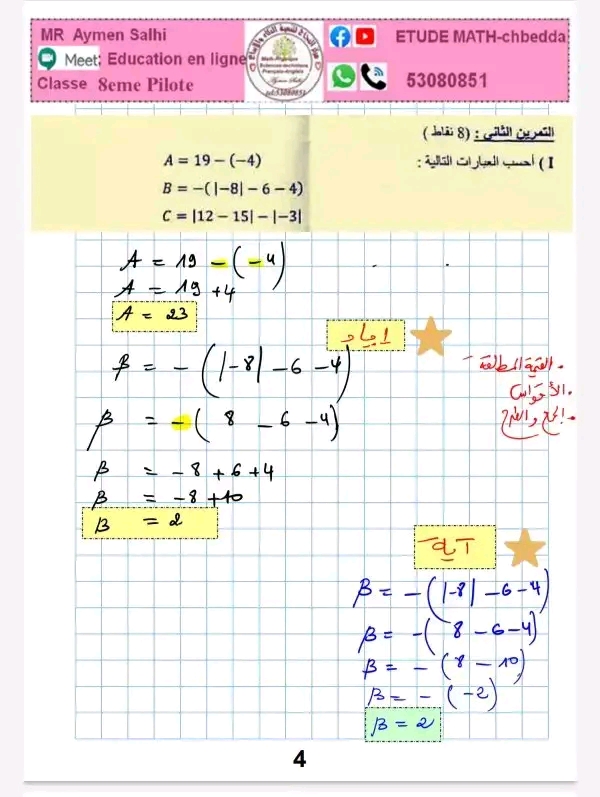 MR Aymen Salhi
Meet; Education en ligne
Classe 8eme Pilote
Math-Physique
Sciences-techniques
Français-Anglais
Aymen Salhi
tel:53080851
ETUDE MATH-chbedda
53080851
التمرين الثاني : (8 نقاط)
I ) أحسب العبارات التالية :
A = 19 − (−4)
B = −(|−8| − 6 − 4)
C = |12 − 15| − |−3|
A = 19 − (−4)
A = 19 + 4
A = 23
اياد
B = −(|−8| − 6 − 4)
القيمة المطلقة
الأقواس
الجمع والطرح
B = −(8 − 6 − 4)
B = −8 + 6 + 4
B = −8 + 10
B = 2
آية
B = −(|−8| − 6 − 4)
B = −(8 − 6 − 4)
B = −(8 − 10)
B = −(−2)
B = 2
4